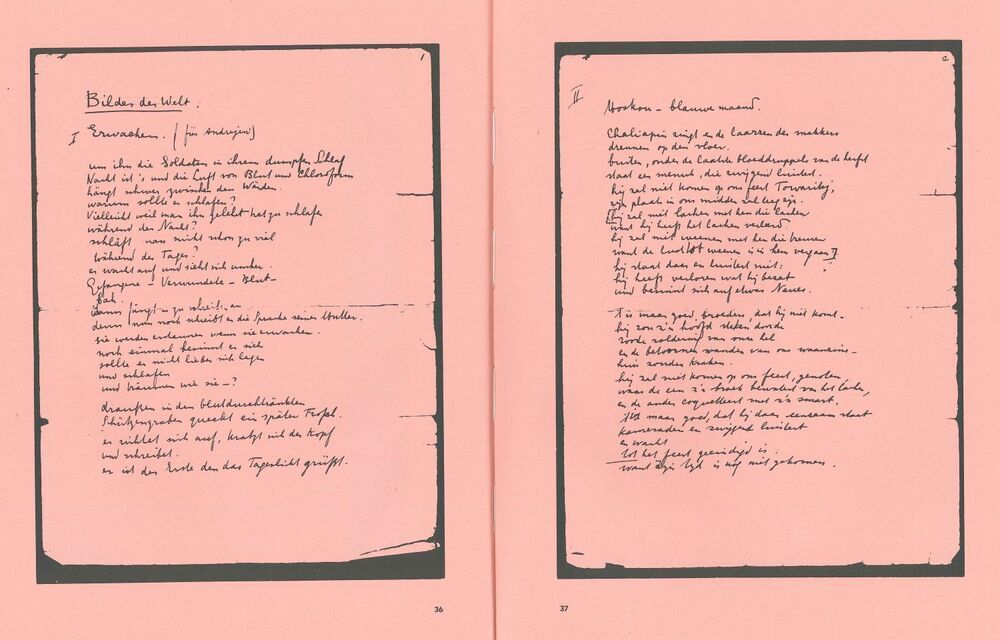 1
Bilder der Welt.
I Erwachen. (für Andrejew)
um ihn die Soldaten in ihrem dumpfen Schlaf
Nacht ist's, und die Luft von Blut und Chloroform
hängt schwer zwischen den Wänden.
warum sollte er schlafen?
Vielleicht weil man ihn gelehrt hat zu schlafen
während der Nacht?
schläft man nicht schon zu viel
während des Tages?
er wacht auf und sieht sich umher.
Gefangene – Verwundete – Blut –
Bah.
dann fängt er zu schreiben an.
denn nun noch schreibt er die Sprache seiner Mutter.
sie werden erstaunen wenn sie erwachen.
noch einmal besinnt er sich
sollte er nicht lieber sich legen
und schlafen
und träumen wie sie –?
draußen in den blutdurchtränkten
Schützengraben quackt ein später Frosch.
er richtet sich auf, kratzt sich den Kopf
und schreibt.
er ist der Erste den das Tageslicht grüßt.
36
2
II
Moskou – blauwe maand.
Chaliapin zingt en de laarzen der makkers
dreunen op den vloer.
buiten, onder de laatste bloeddruppels van de herfst
staat een mensch, die zwijgend luistert.
hij zal niet komen op ons feest Towaritsj,
zijn plaats in ons midden zal leeg zijn.
[hij zal niet lachen met hen die lachen
want hij heeft het lachen verleerd.
hij zal niet weenen met hen die weenen
want de lust tot weenen is in hem vergaan]
hij staat daar en luistert niet:
hij heeft verloren wat hij bezat
und besinnt sich auf etwas Neues.
't is maar goed, broeders, dat hij niet komt.
hij zou z'n hoofd steken door de
roode zoldering van onze hel
en de betooverde wanden van ons waanzins –
huis zouden kraken.
hij zal niet komen op ons feest, genooten
waar de een z'n broek bewatert van het lachen,
en de ander coquetteert met z'n smart.
't is maar goed, dat hij daar eenzaam staat
kameraden en zwijgend luistert
en wacht
tot het feest geëindigd is.
want zijn tijd is nog niet gekomen.
37